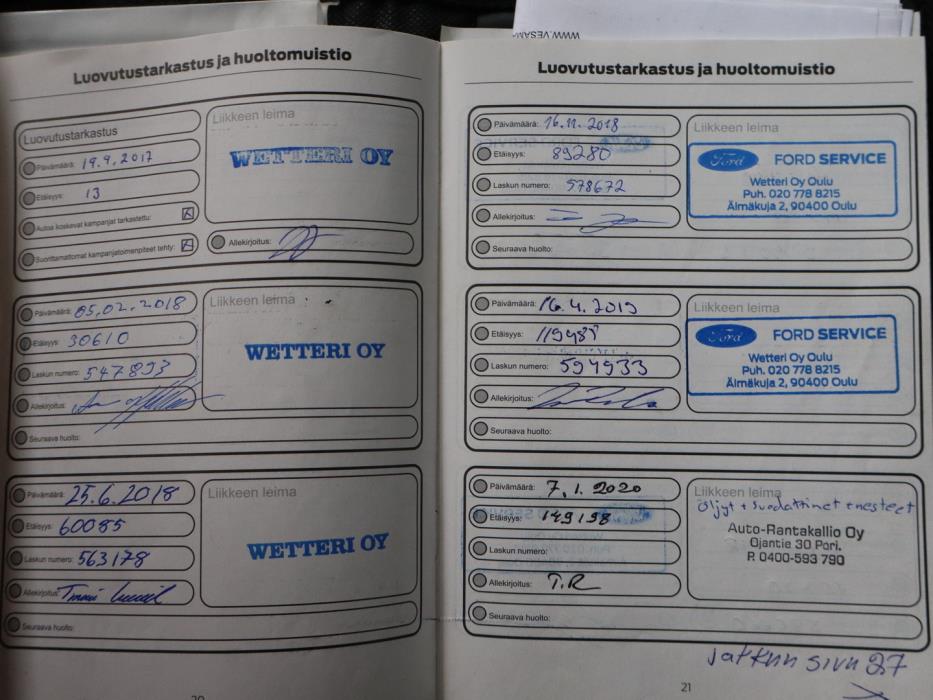 WWW.VESAM
Luovutustarkastus ja huoltomuistio
Luovutustarkastus
Päivämäärä: 19.9.2017
Etäisyys: 13
Autoa koskevat kampanjat tarkastettu: X
Suorittamattomat kampanjatoimenpiteet tehty: X
Liikkeen leima
WETTERI OY
Allekirjoitus:
Päivämäärä: 05.02.2018
Etäisyys: 30610
Laskun numero: 547893
Allekirjoitus:
Seuraava huolto:
Liikkeen leima
WETTERI OY
Päivämäärä: 25.6.2018
Etäisyys: 60085
Laskun numero: 563178
Allekirjoitus:
Seuraava huolto:
Liikkeen leima
WETTERI OY
Luovutustarkastus ja huoltomuistio
Päivämäärä: 16.11.2018
Etäisyys: 89280
Laskun numero: 578672
Allekirjoitus:
Seuraava huolto:
Liikkeen leima
Ford FORD SERVICE
Wetteri Oy Oulu
Puh. 020 778 8215
Älmäkuja 2, 90400 Oulu
Päivämäärä: 16.4.2019
Etäisyys: 119487
Laskun numero: 594933
Allekirjoitus:
Seuraava huolto:
Liikkeen leima
Ford FORD SERVICE
Wetteri Oy Oulu
Puh. 020 778 8215
Älmäkuja 2, 90400 Oulu
Päivämäärä: 7.1.2020
Etäisyys: 149198
Laskun numero:
Allekirjoitus: T.R
Seuraava huolto:
Liikkeen leima
öljyt + suodattimet + nesteet
Auto-Rantakallio Oy
Ojantie 30 Pori.
P. 0400-593 790
jatkuu sivu 27
20
21